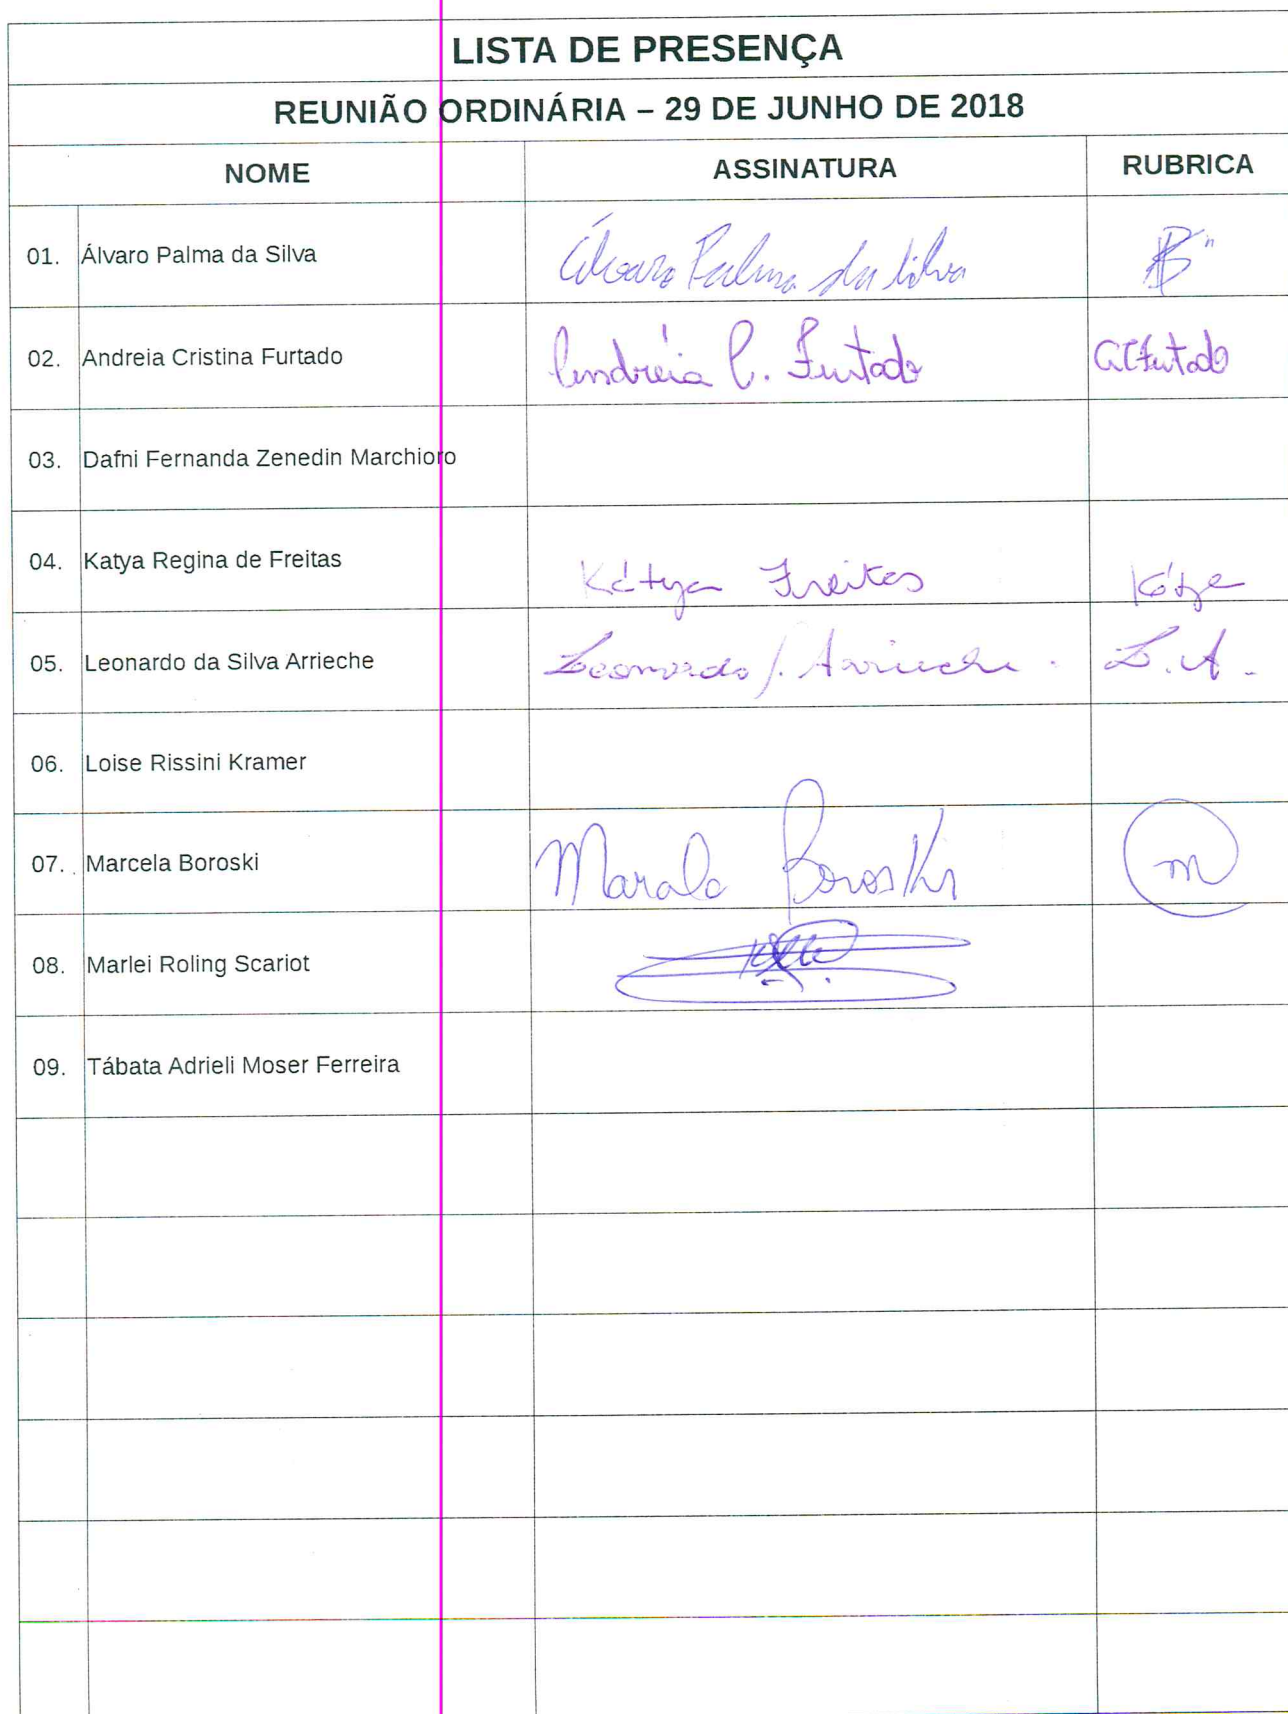 LISTA DE PRESENÇA
REUNIÃO ORDINÁRIA – 29 DE JUNHO DE 2018
NOME ASSINATURA RUBRICA
01. Álvaro Palma da Silva Álvaro Palma da Silva
02. Andreia Cristina Furtado Andréia C. Furtado ACFurtado
03. Dafni Fernanda Zenedin Marchioro
04. Katya Regina de Freitas Kátya Freitas Kátya
05. Leonardo da Silva Arrieche Leonardo S. Arrieche. L.A.
06. Loise Rissini Kramer
07. Marcela Boroski Marcela Boroski m
08. Marlei Roling Scariot
09. Tábata Adrieli Moser Ferreira